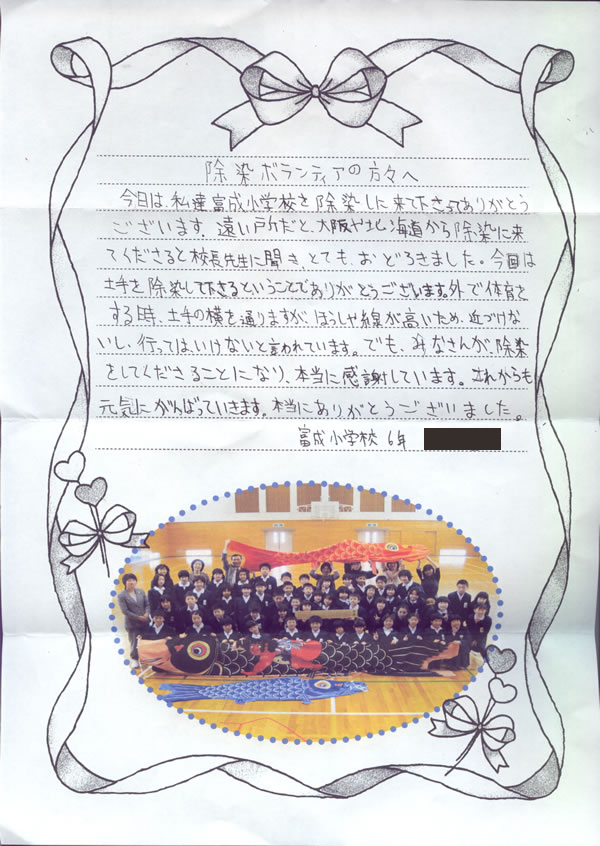 除染ボランティアの方々へ
今日は、私達富成小学校を除染しに来て下さってありがとう
ございます。遠い所だと、大阪や北海道から除染に来
てくださると校長先生に聞き、とても、おどろきました。今回は
土手を除染して下さるということでありがとうございます。外で体育を
する時、土手の横を通りますが、ほうしゃ線が高いため、近づけな
いし、行ってはいけないと言われています。でも、みなさんが、除染
をしてくださることになり、本当に感謝しています。これからも
元気にがんばっていきます。本当にありがとうございました。
富成小学校 6年